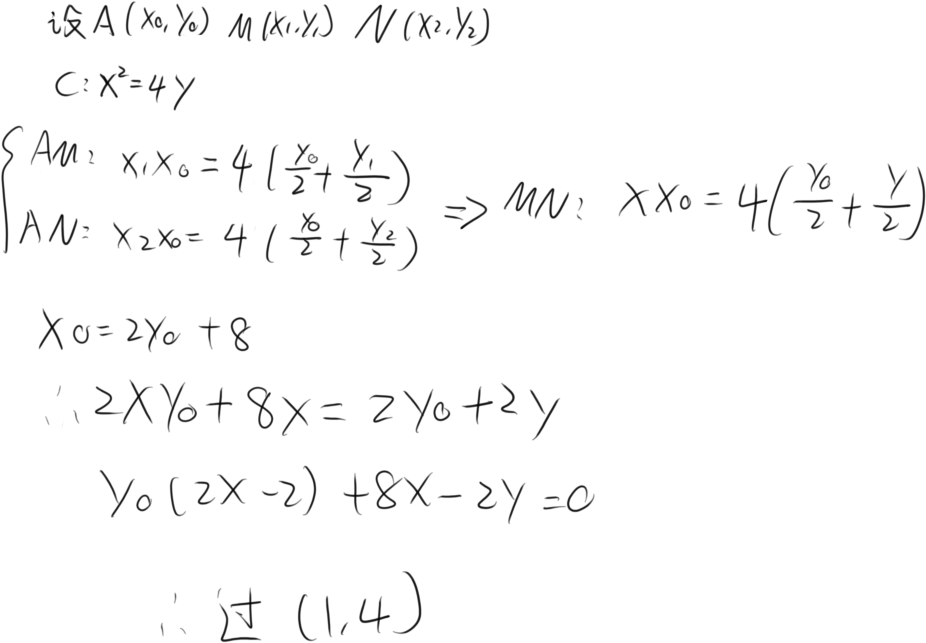 设A(x₀,y₀) M(x₁,y₁) N(x₂,y₂)
C: x²=4y
{ AM: x₁x₀=4(y₀/2+y₁/2)
AN: x₂x₀=4(y₀/2+y₂/2) ⇒ MN: xx₀=4(y₀/2+y/2)
x₀=2y₀+8
∴2xy₀+8x=2y₀+2y
y₀(2x-2)+8x-2y=0
∴过(1,4)